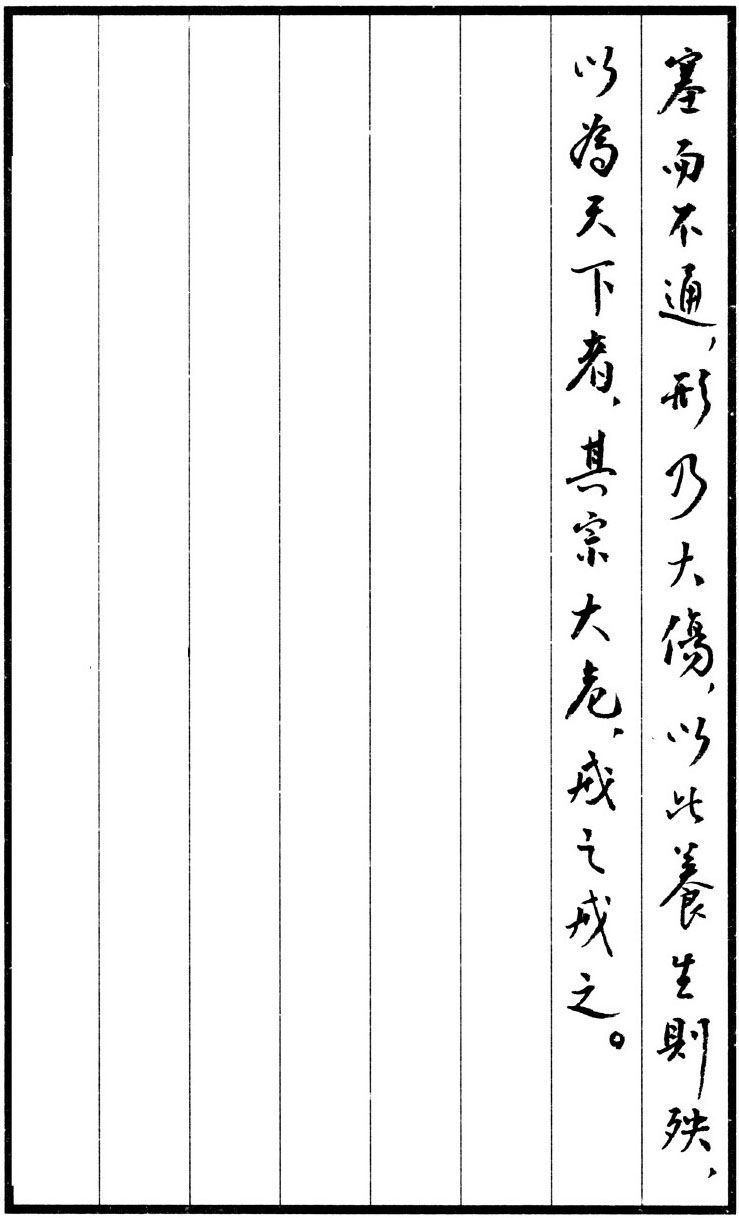 塞而不通,形乃大傷,以此養生則殃,
以為天下者,其宗大危,戒之戒之。